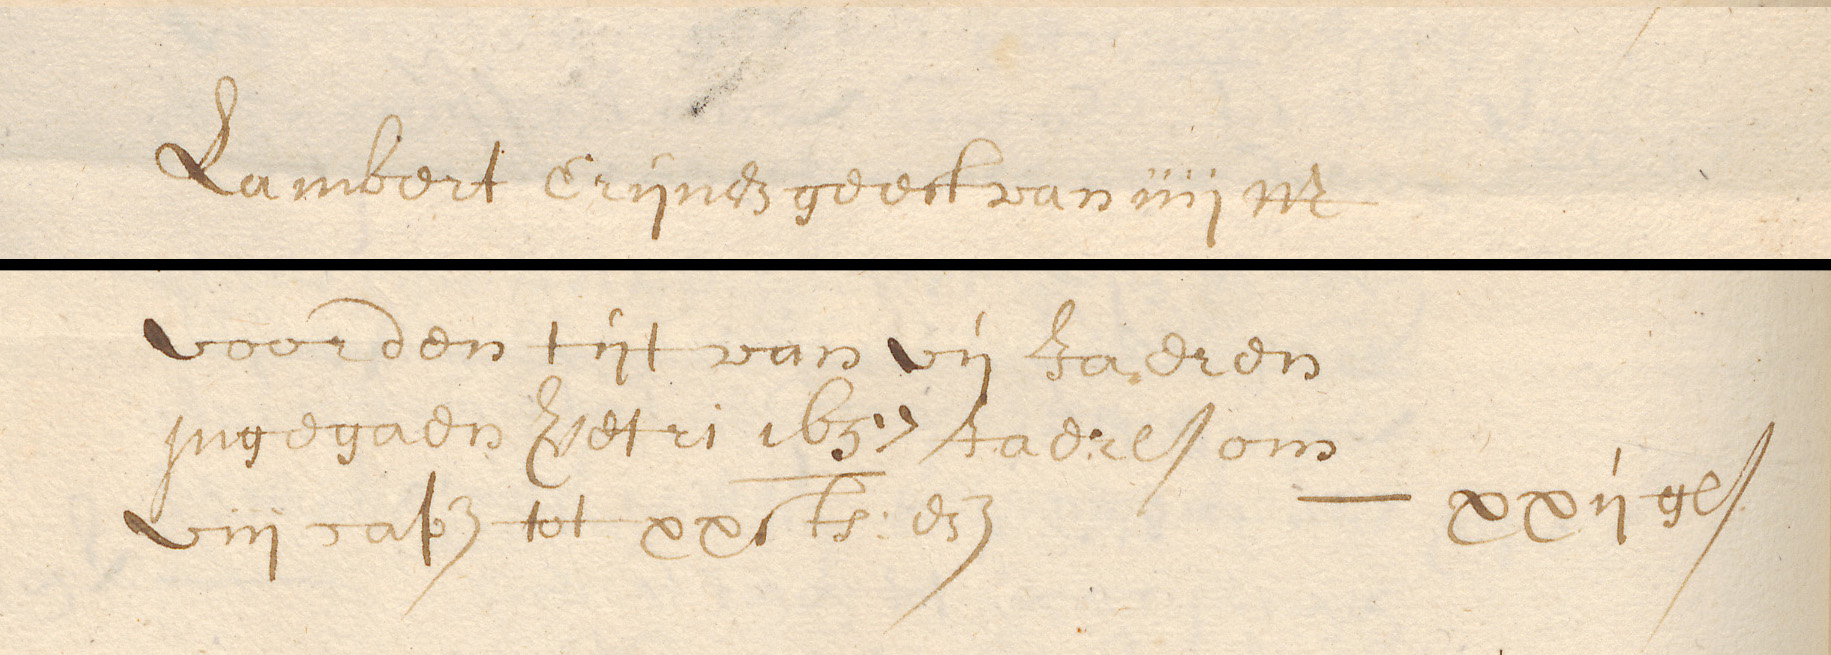 Lambert Crijnss geest van iiij m
voorden tijt van vij Jaeren
Jngegaen Petri 1657 Jaerls om
viij cap tot xxi st: 
— xxij gls